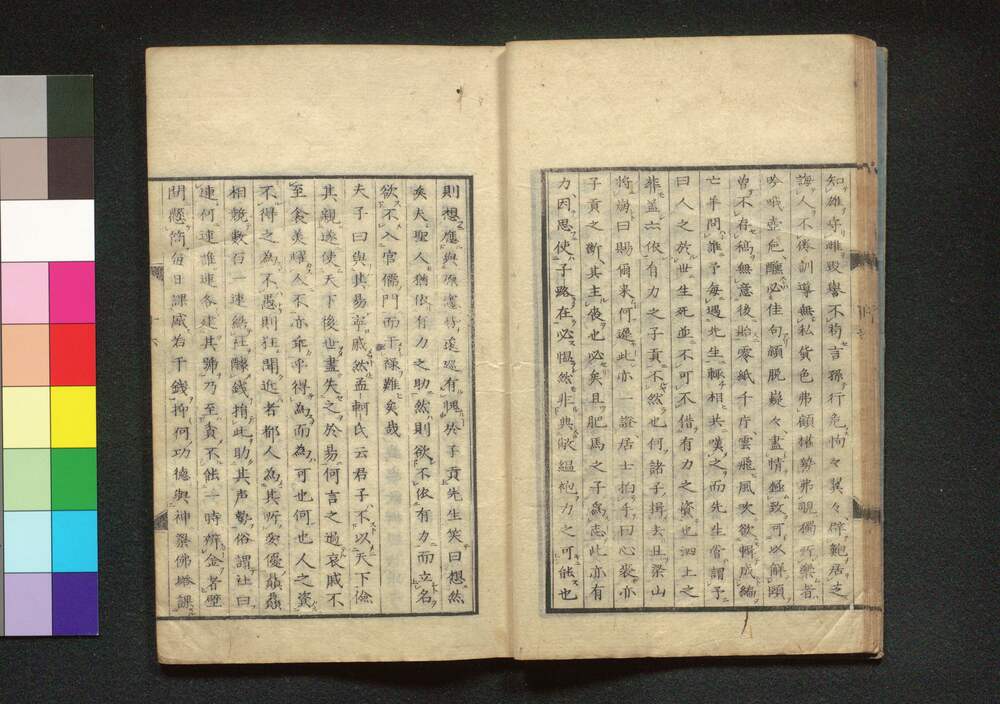 知雄守雌毀譽不将言孫行危恂々翼々肆範居之
誨人不倦訓導無私貨色弗顧權勢弗覬獨所樂者
吟哦壺卮醺必佳句穎脱嶷々盡情極致可以解頤
曽不存稿無意後貽零紙千片雲飛風吹欲輯成編
亡乎問誰予每遇先生輙相共嘆之而先生嘗謂予
曰人之於世生死並不可不借有力之資也泗上之
葬盖亦依有力之子貢不然也何諸子揖去且梁山
将病曰賜爾来何遲此亦一證居士拍手曰心裳亦
子貢之斷其主使也必矣且肥馬之子為志此亦有
力因思使子路在必愠然非典敝縕袍力之可能也
則想應與原憲彷遑還有愧於子貢先生笑曰想然
矣夫聖人猶依有力之助然則欲不依有力而立名
欲不入官儒門而干禄難矣哉
夫子曰與其易寧戚然孟軻氏云君子不以天下儉
其親遂使天下後世盡失之於易何言之過哀戚不
至食美燿人不亦乖乎得為而為可也何也人之資
不得之為不愚則狂聞近者都人為其所愛優
相競數百一連結社醵錢捐
助其声勢俗謂社曰
連何連誰連各建其號乃至貧不能一時辨金者壁
間懸筒每日課感若干錢抑何功德與神祭佛
課